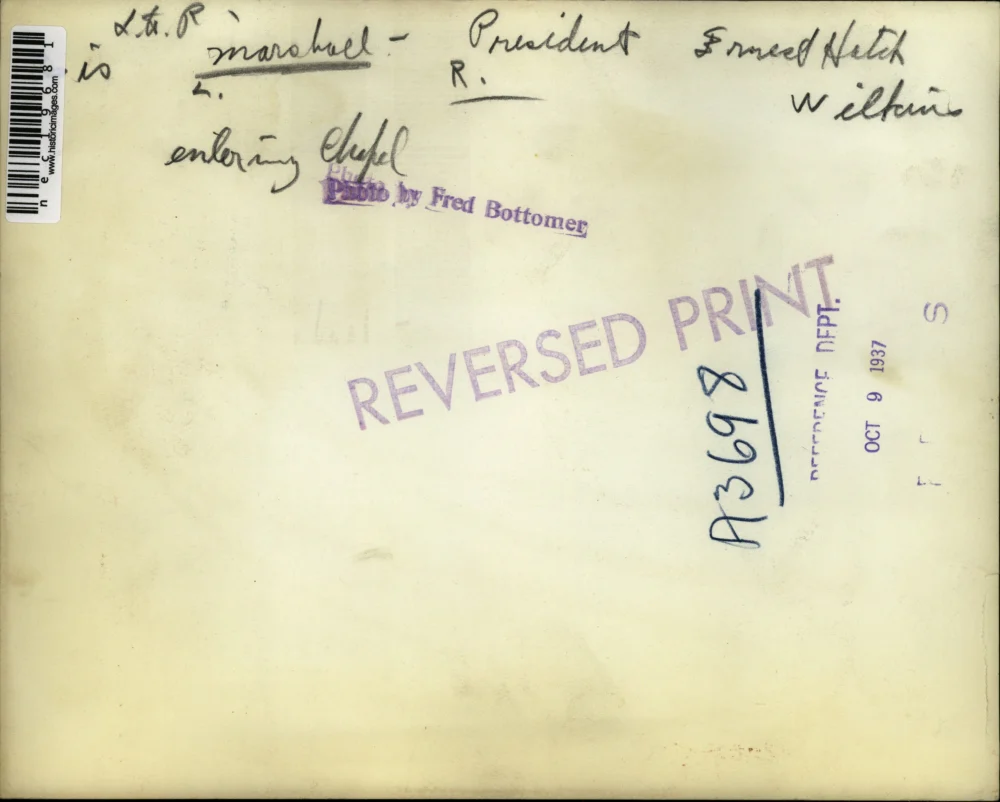 L. to. R
is marshall - President Ernest Hatch
L. R.
Wilkins
entering Chapel
Photo
Photo by Fred Bottomer
REVERSED PRINT
A3698
REFERENCE DEPT.
OCT 9 1937
www.historicimages.com
nec19681